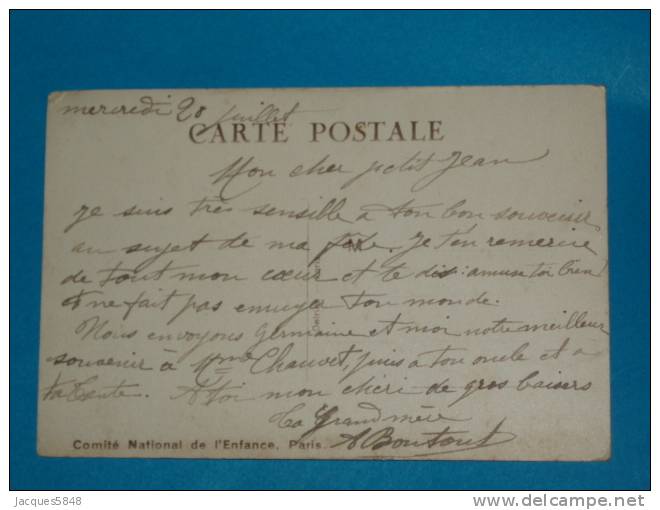 mercredi 20 juillet
CARTE POSTALE
Mon cher petit Jean
je suis très sensible à ton bon souvenir
au sujet de ma fête. Je t'en remercie
de tout mon cœur et te dis: amuse toi bien
ne fait pas enrager ton monde.
Nous envoyons Germaine et moi notre meilleur
souvenir à Mme Chauvet, puis à ton oncle et a
ta tante. A toi mon cheri de gros baisers
ta Grand mère
Comité National de l'Enfance, Paris.
Jacques5848
delcampe.net